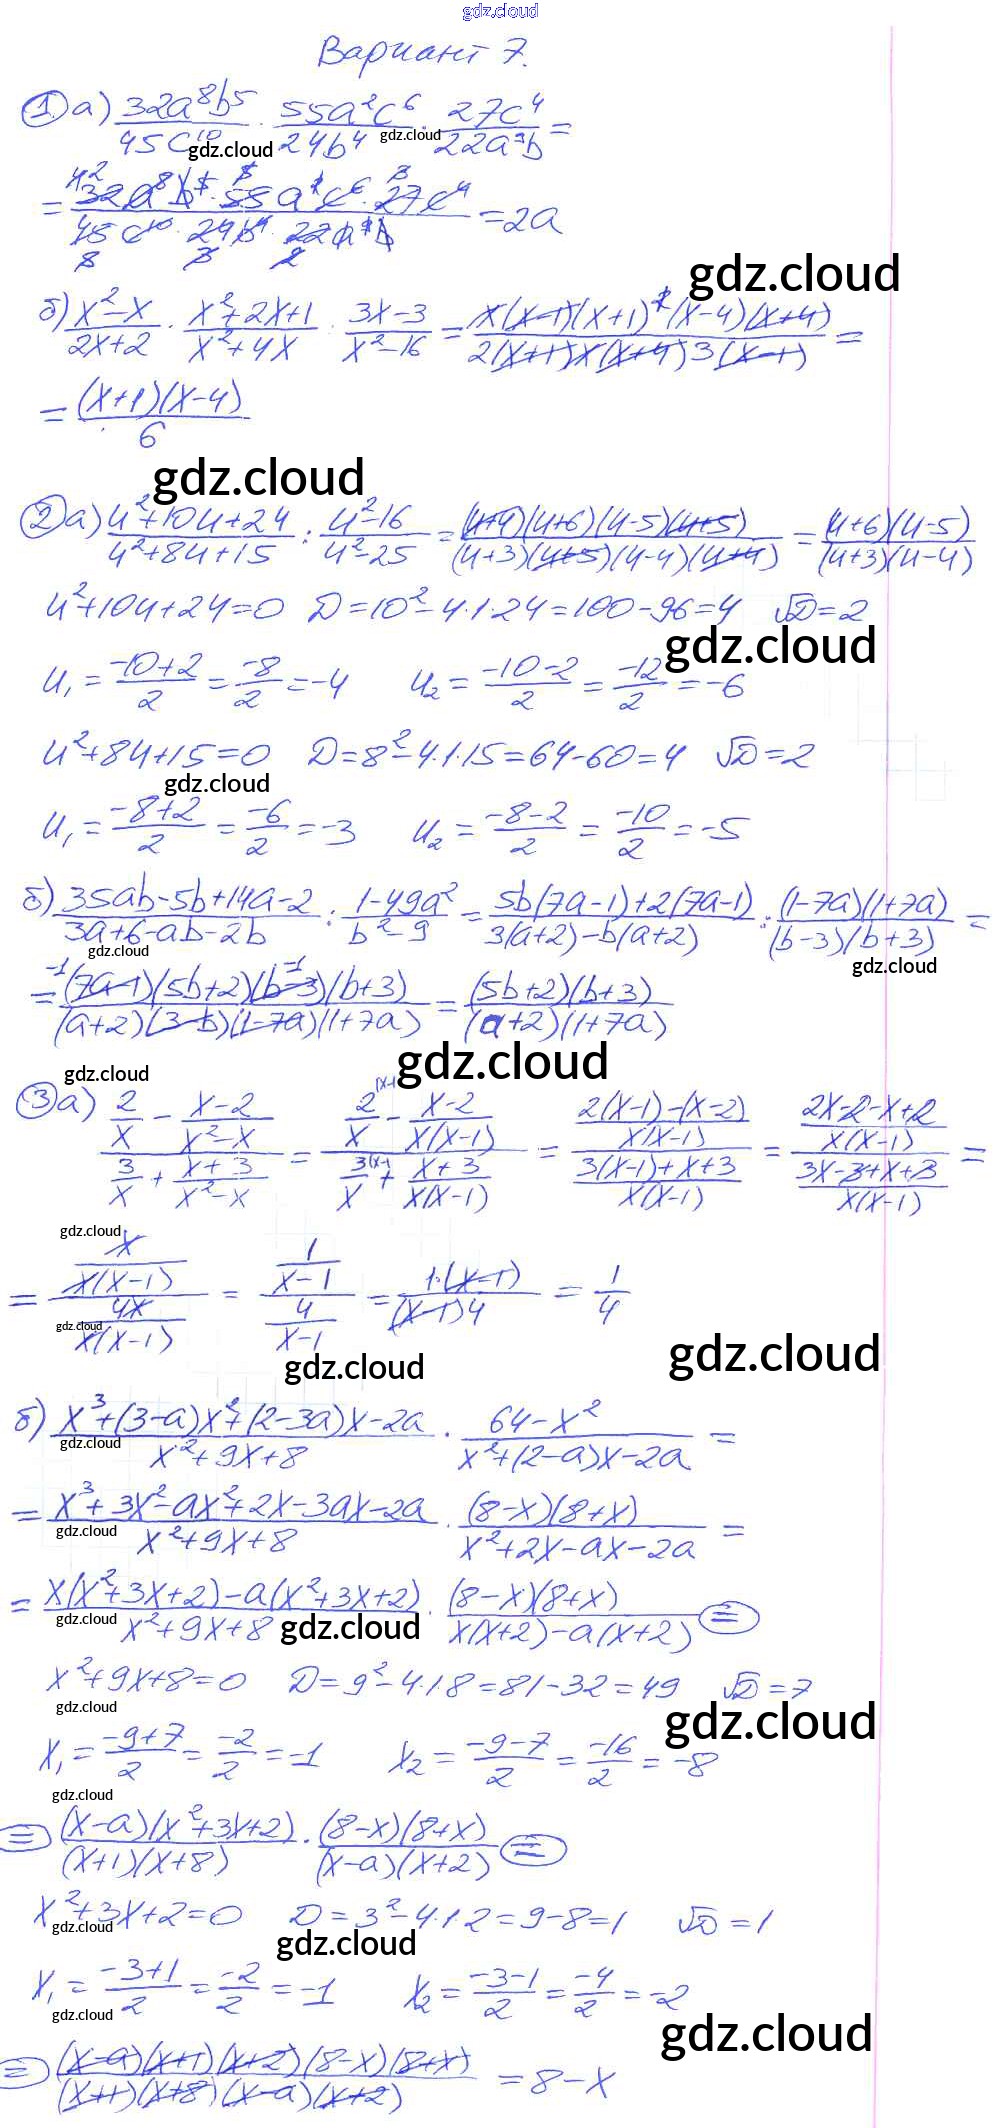 gdz.cloud
Вариант 7.
① а) 32a⁸b⁵/45c¹⁰ · 55a²c⁶/24b⁴ · 27c⁴/22a⁹b =
= 32a⁸b⁵ · 55a²c⁶ · 27c⁴ / 45c¹⁰ · 24b⁴ · 22a⁹b = 2a
gdz.cloud
б) x²-x/2x+2 · x²+2x+1/x²+4x · 3x-3/x²-16 = x(x-1)(x+1)²(x-4)(x+4) / 2(x+1)x(x+4)3(x-1) =
= (x+1)(x-4)/6
gdz.cloud
② а) u²+10u+24/u²+8u+15 : u²-16/u²-25 = (u+4)(u+6)(u-5)(u+5) / (u+3)(u+5)(u-4)(u+4) = (u+6)(u-5)/(u+3)(u-4)
u²+10u+24=0 D=10²-4·1·24=100-96=4 √D=2
gdz.cloud
u₁ = -10+2/2 = -8/2 = -4 u₂ = -10-2/2 = -12/2 = -6
u²+8u+15=0 D=8²-4·1·15=64-60=4 √D=2
gdz.cloud
u₁ = -8+2/2 = -6/2 = -3 u₂ = -8-2/2 = -10/2 = -5
б) 35ab-5b+14a-2/3a+6-ab-2b : 1-49a²/b²-9 = 5b(7a-1)+2(7a-1)/3(a+2)-b(a+2) : (1-7a)(1+7a)/(b-3)(b+3) =
gdz.cloud
gdz.cloud
= (7a-1)(5b+2)(b-3)(b+3) / (a+2)(3-b)(1-7a)(1+7a) = (5b+2)(b+3)/(a+2)(1+7a)
gdz.cloud
gdz.cloud
③ а) (2/x - x-2/x²-x) / (3/x + x+3/x²-x) = (2/x - x-2/x(x-1)) / (3/x + x+3/x(x-1)) = (2(x-1)-(x-2)/x(x-1)) / (3(x-1)+x+3/x(x-1)) = (2x-2-x+2/x(x-1)) / (3x-3+x+3/x(x-1)) =
gdz.cloud
= (x/x(x-1)) / (4x/x(x-1)) = (1/x-1) / (4/x-1) = 1·(x-1)/(x-1)4 = 1/4
gdz.cloud
gdz.cloud
gdz.cloud
б) x³+(3-a)x²+(2-3a)x-2a/x²+9x+8 · 64-x²/x²+(2-a)x-2a =
gdz.cloud
= x³+3x²-ax²+2x-3ax-2a/x²+9x+8 · (8-x)(8+x)/x²+2x-ax-2a =
gdz.cloud
= x(x²+3x+2)-a(x²+3x+2)/x²+9x+8 · (8-x)(8+x)/x(x+2)-a(x+2) =
gdz.cloud
gdz.cloud
x²+9x+8=0 D=9²-4·1·8=81-32=49 √D=7
gdz.cloud
gdz.cloud
x₁ = -9+7/2 = -2/2 = -1 x₂ = -9-7/2 = -16/2 = -8
gdz.cloud
= (x-a)(x²+3x+2)/(x+1)(x+8) · (8-x)(8+x)/(x-a)(x+2) =
x²+3x+2=0 D=3²-4·1·2=9-8=1 √D=1
gdz.cloud
gdz.cloud
x₁ = -3+1/2 = -2/2 = -1 x₂ = -3-1/2 = -4/2 = -2
gdz.cloud
gdz.cloud
= (x-a)(x+1)(x+2)(8-x)(8+x) / (x+1)(x+8)(x-a)(x+2) = 8-x